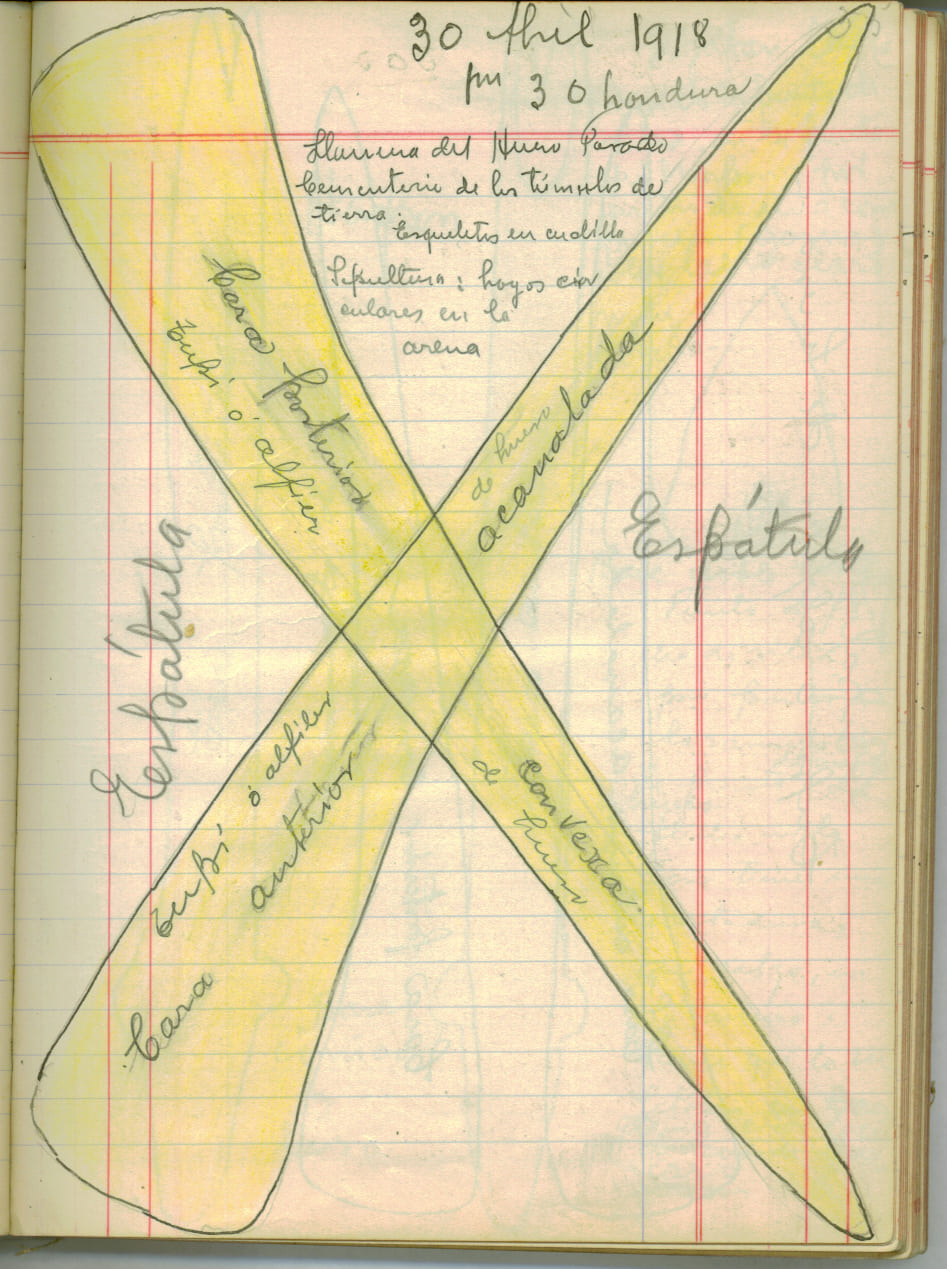 30 Abril 1918
pm 30 hondura
Llanura del Hueso Parado
Cementerio de los túmulos de
tierra.
Esqueletos en cuclilla
Sepultura: hoyos cir
culares en la
arena
Cara posterior
Tupi ó alfiler
de hueso
acanalada
Espátula
Espátula
Tupi ó alfiler
Cara anterior
convexa
de hueso